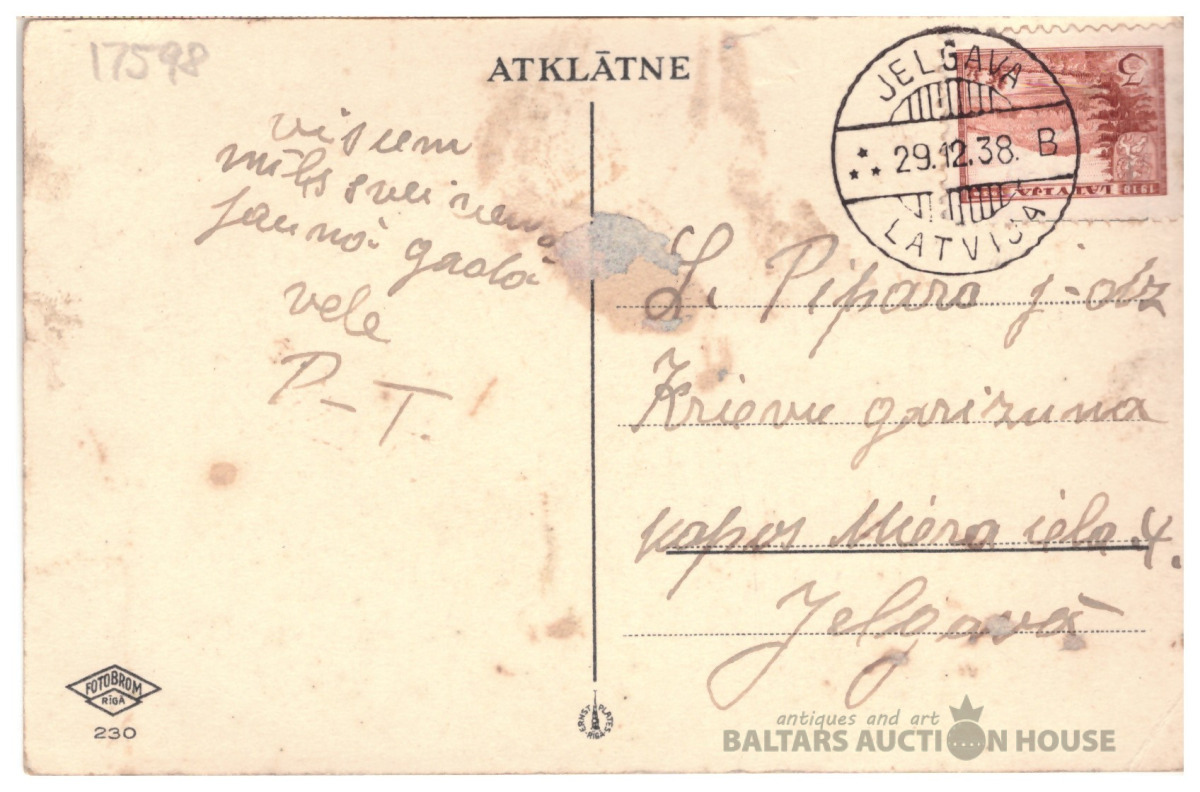 17598
ATKLĀTNE
JELGAVA
29.12.38. B
LATVIJA
3
LATVIJA
1918
visiem
mīļš sveiciens
jaunā gadā
vēlē
P-T.
L. Pipara j-dz
Krievu garizuna
kapos Miera iela 4.
Jelgavā
FOTOBROM
RĪGĀ
230
ERNST PLATES
RĪGĀ
antiques and art
BALTARS AUCTION HOUSE